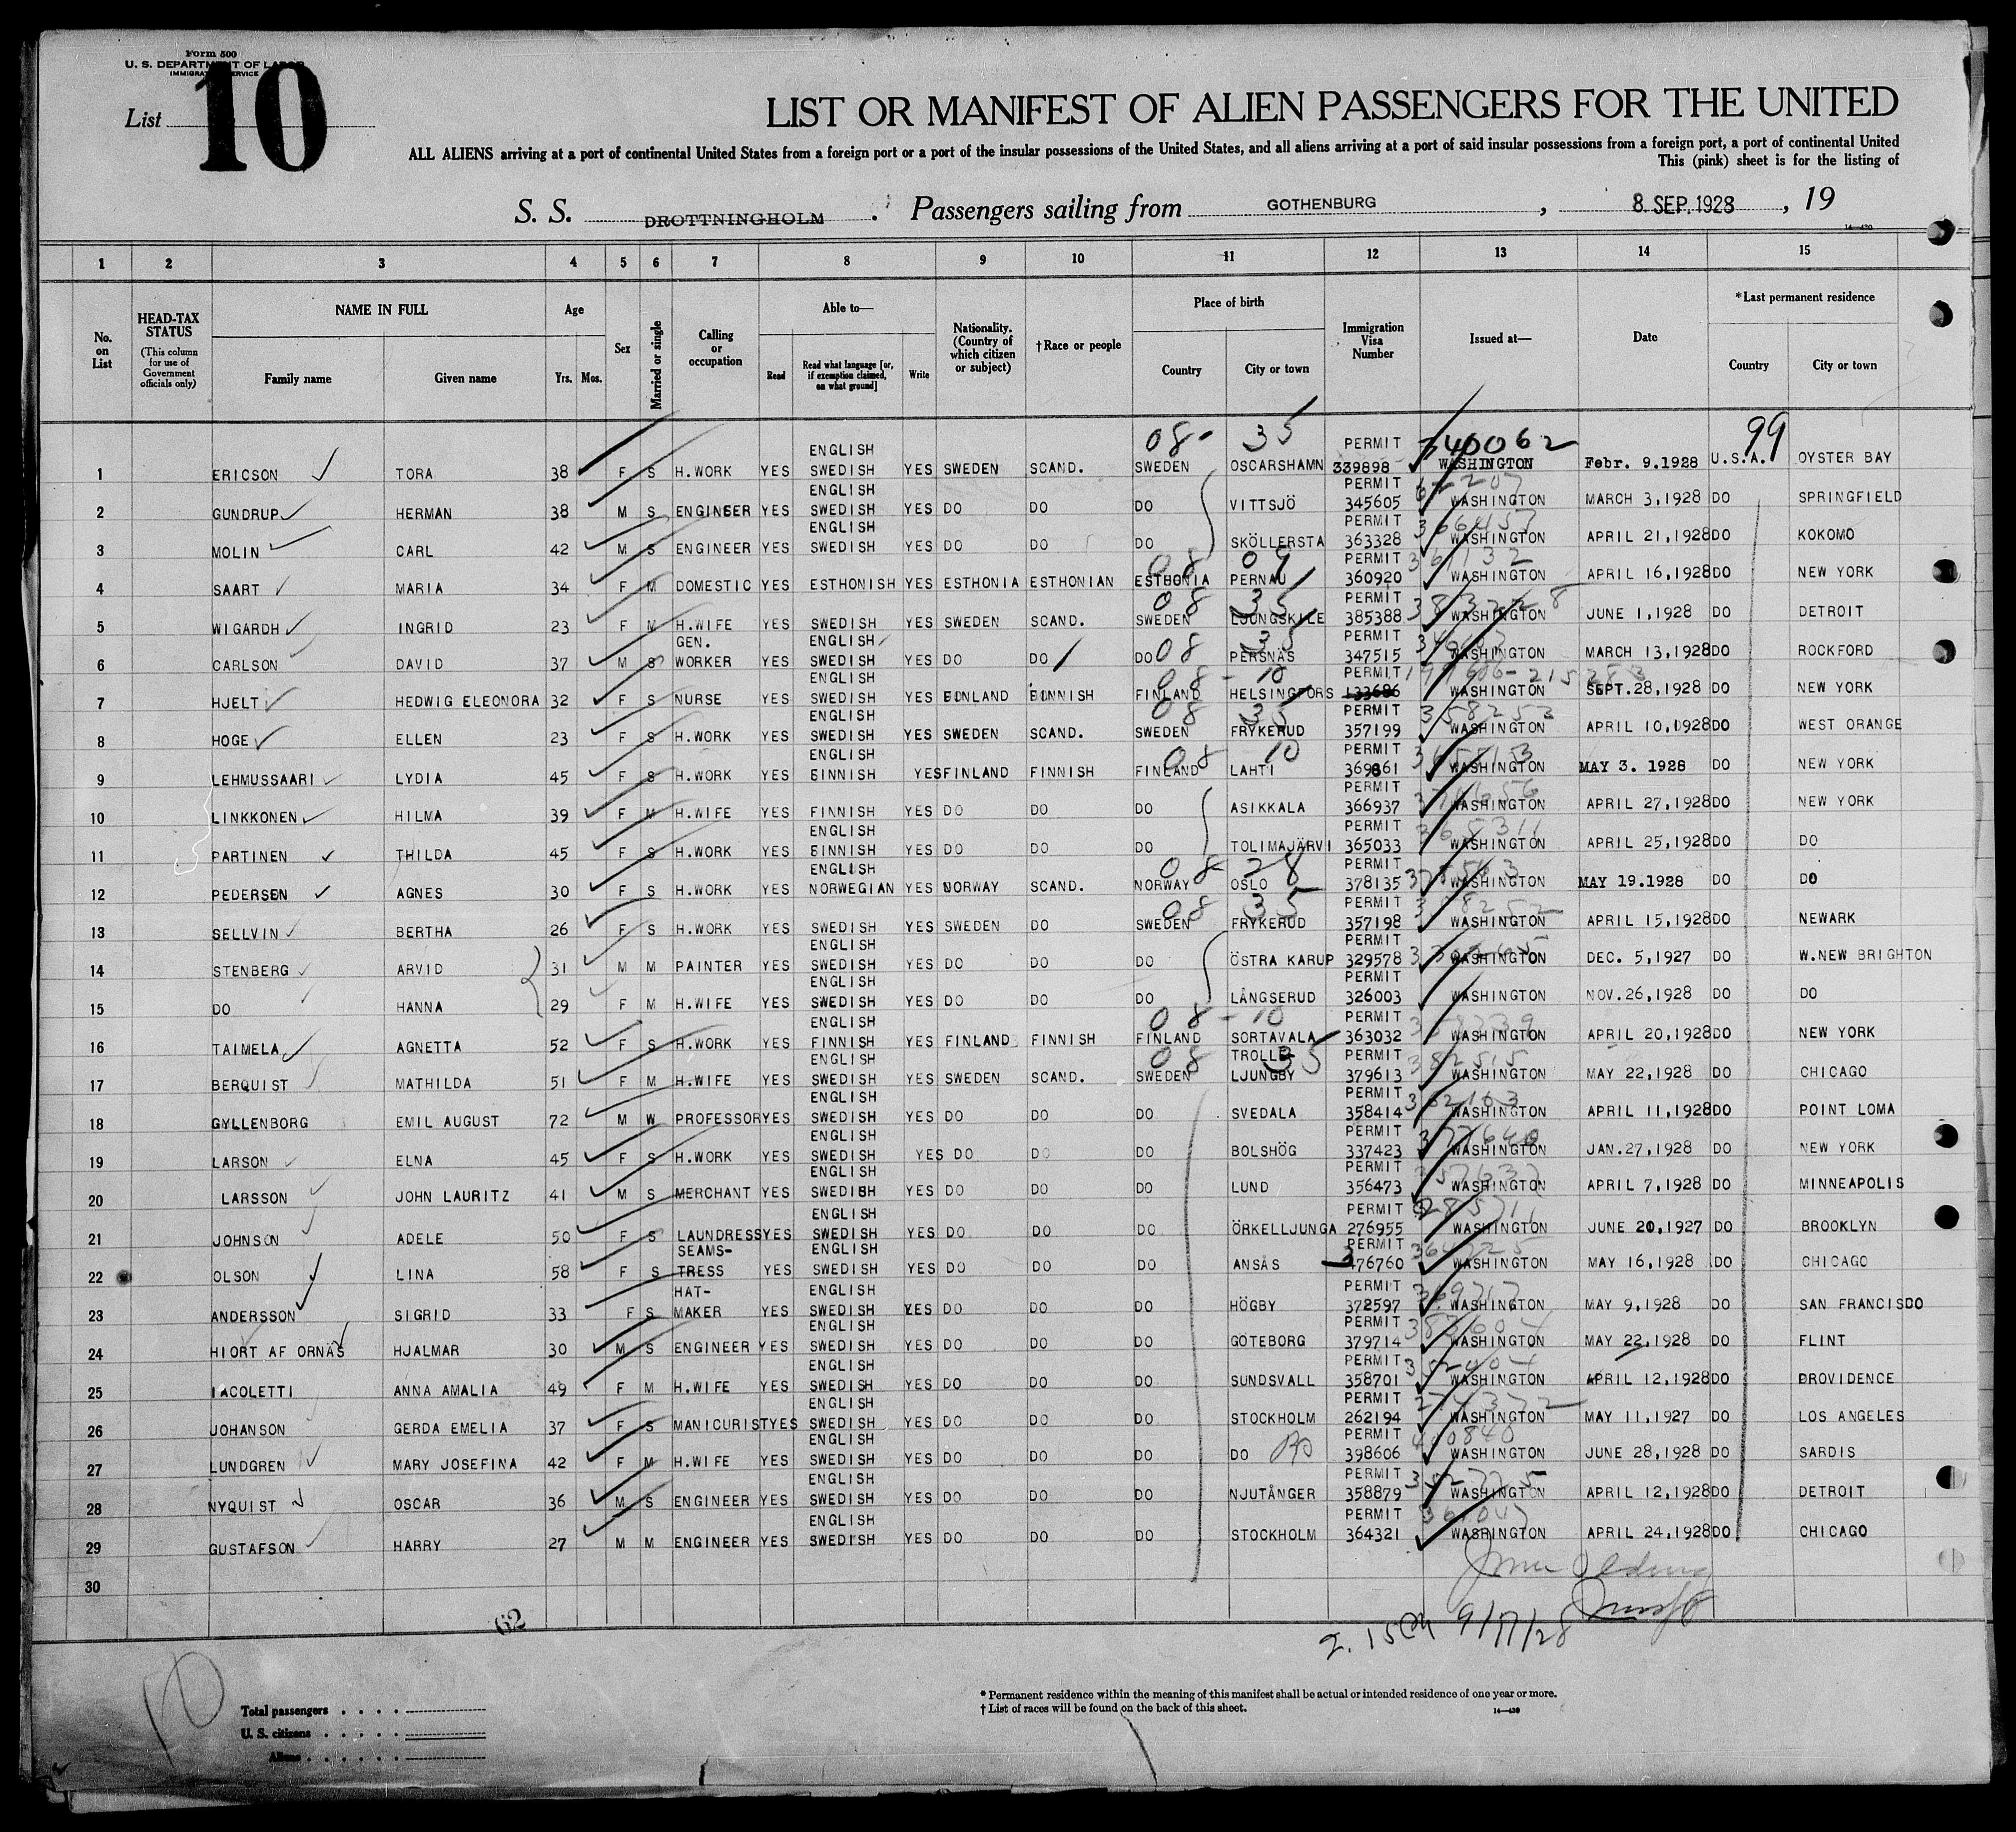 Form 500
U. S. DEPARTMENT OF LABOR
IMMIGRATION SERVICE
List 10
LIST OR MANIFEST OF ALIEN PASSENGERS FOR THE UNITED
ALL ALIENS arriving at a port of continental United States from a foreign port or a port of the insular possessions of the United States, and all aliens arriving at a port of said insular possessions from a foreign port, a port of continental United
This (pink) sheet is for the listing of
S. S. DROTTNINGHOLM . Passengers sailing from GOTHENBURG , 8. SEP. 1928 , 19
14—430
1 2 3 4 5 6 7 8 9 10 11 12 13 14 15
No. on List
HEAD-TAX STATUS (This column for use of Government officials only)
NAME IN FULL Family name Given name
Age Yrs. Mos.
Sex
Married or single
Calling or occupation
Able to— Read Read what language [or, if exemption claimed, on what ground] Write
Nationality. (Country of which citizen or subject)
†Race or people
Place of birth Country City or town
Immigration Visa Number
Issued at—
Date
*Last permanent residence Country City or town
08- 35 340062 99
1 ERICSON TORA 38 F S H.WORK YES ENGLISH SWEDISH YES SWEDEN SCAND. SWEDEN OSCARSHAMN PERMIT 339898 WASHINGTON Febr. 9.1928 U.S.A. OYSTER BAY
2 GUNDRUP HERMAN 38 M S ENGINEER YES ENGLISH SWEDISH YES DO DO DO VITTSJÖ PERMIT 345605 WASHINGTON MARCH 3,1928 DO SPRINGFIELD
3 MOLIN CARL 42 M S ENGINEER YES ENGLISH SWEDISH YES DO DO DO SKÖLLERSTA PERMIT 363328 WASHINGTON APRIL 21,1928 DO KOKOMO
08 09
4 SAART MARIA 34 F M DOMESTIC YES ESTHONISH YES ESTHONIA ESTHONIAN ESTHONIA PERNAU PERMIT 360920 WASHINGTON APRIL 16,1928 DO NEW YORK
08 35
5 WIGARDH INGRID 23 F M H.WIFE YES SWEDISH YES SWEDEN SCAND. SWEDEN LJUNGSKILE PERMIT 385388 WASHINGTON JUNE 1,1928 DO DETROIT
08 35
6 CARLSON DAVID 37 M S GEN. WORKER YES ENGLISH SWEDISH YES DO DO DO PERSNÄS PERMIT 347515 WASHINGTON MARCH 13,1928 DO ROCKFORD
08 - 10
7 HJELT HEDWIG ELEONORA 32 F S NURSE YES ENGLISH SWEDISH YES FINLAND FINNISH FINLAND HELSINGFORS PERMIT 133686 WASHINGTON SEPT.28,1928 DO NEW YORK
08 35
8 HOGE ELLEN 23 F S H.WORK YES ENGLISH SWEDISH YES SWEDEN SCAND. SWEDEN FRYKERUD PERMIT 357199 WASHINGTON APRIL 10,1928 DO WEST ORANGE
08 10
9 LEHMUSSAARI LYDIA 45 F S H.WORK YES ENGLISH FINNISH YES FINLAND FINNISH FINLAND LAHTI PERMIT 369861 WASHINGTON MAY 3. 1928 DO NEW YORK
10 LINKKONEN HILMA 39 F M H.WIFE YES FINNISH YES DO DO DO ASIKKALA PERMIT 366937 WASHINGTON APRIL 27,1928 DO NEW YORK
11 PARTINEN THILDA 45 F S H.WORK YES ENGLISH FINNISH YES DO DO DO TOLIMAJÄRVI PERMIT 365033 WASHINGTON APRIL 25,1928 DO DO
08 28
12 PEDERSEN AGNES 30 F S H.WORK YES ENGLISH NORWEGIAN YES NORWAY SCAND. NORWAY OSLO PERMIT 378135 WASHINGTON MAY 19.1928 DO DO
08 35
13 SELLVIN BERTHA 26 F S H.WORK YES SWEDISH YES SWEDEN DO SWEDEN FRYKERUD PERMIT 357198 WASHINGTON APRIL 15,1928 DO NEWARK
14 STENBERG ARVID 31 M M PAINTER YES ENGLISH SWEDISH YES DO DO DO ÖSTRA KARUP PERMIT 329578 WASHINGTON DEC. 5,1927 DO W.NEW BRIGHTON
15 DO HANNA 29 F M H.WIFE YES ENGLISH SWEDISH YES DO DO DO LÅNGSERUD PERMIT 326003 WASHINGTON NOV.26,1928 DO DO
08 - 10
16 TAIMELA AGNETTA 52 F S H.WORK YES ENGLISH FINNISH YES FINLAND FINNISH FINLAND SORTAVALA PERMIT 363032 WASHINGTON APRIL 20,1928 DO NEW YORK
08 35
17 BERQUIST MATHILDA 51 F M H.WIFE YES ENGLISH SWEDISH YES SWEDEN SCAND. SWEDEN TROLLE LJUNGBY PERMIT 379613 382515 WASHINGTON MAY 22,1928 DO CHICAGO
18 GYLLENBORG EMIL AUGUST 72 M W PROFESSOR YES ENGLISH SWEDISH YES DO DO DO SVEDALA PERMIT 358414 362163 WASHINGTON APRIL 11,1928 DO POINT LOMA
19 LARSON ELNA 45 F S H.WORK YES ENGLISH SWEDISH YES DO DO DO BOLSHÖG PERMIT 337423 WASHINGTON JAN.27,1928 DO NEW YORK
20 LARSSON JOHN LAURITZ 41 M S MERCHANT YES ENGLISH SWEDISH YES DO DO DO LUND PERMIT 356473 WASHINGTON APRIL 7,1928 DO MINNEAPOLIS
21 JOHNSON ADELE 50 F S LAUNDRESS YES ENGLISH SWEDISH YES DO DO DO ÖRKELLJUNGA PERMIT 276955 WASHINGTON JUNE 20,1927 DO BROOKLYN
22 OLSON LINA 58 F S SEAMS- TRESS YES ENGLISH SWEDISH YES DO DO DO ANSÅS PERMIT 376760 WASHINGTON MAY 16,1928 DO CHICAGO
23 ANDERSSON SIGRID 33 F S HAT- MAKER YES ENGLISH SWEDISH YES DO DO DO HÖGBY PERMIT 372597 WASHINGTON MAY 9,1928 DO SAN FRANCISDO
24 HIORT AF ORNÄS HJALMAR 30 M S ENGINEER YES ENGLISH SWEDISH YES DO DO DO GÖTEBORG PERMIT 379714 383604 WASHINGTON MAY 22,1928 DO FLINT
25 IACOLETTI ANNA AMALIA 49 F M H.WIFE YES ENGLISH SWEDISH YES DO DO DO SUNDSVALL PERMIT 358701 WASHINGTON APRIL 12,1928 DO PROVIDENCE
26 JOHANSON GERDA EMELIA 37 F S MANICURIST YES ENGLISH SWEDISH YES DO DO DO STOCKHOLM PERMIT 262194 WASHINGTON MAY 11,1927 DO LOS ANGELES
27 LUNDGREN MARY JOSEFINA 42 F M H.WIFE YES ENGLISH SWEDISH YES DO DO DO DO PERMIT 398606 400840 WASHINGTON JUNE 28,1928 DO SARDIS
28 NYQUIST OSCAR 36 M S ENGINEER YES ENGLISH SWEDISH YES DO DO DO NJUTÅNGER PERMIT 358879 WASHINGTON APRIL 12,1928 DO DETROIT
29 GUSTAFSON HARRY 27 M M ENGINEER YES ENGLISH SWEDISH YES DO DO DO STOCKHOLM PERMIT 364321 WASHINGTON APRIL 24,1928 DO CHICAGO
30
62
9/17/28
10
Total passengers
U. S. citizens
Aliens
* Permanent residence within the meaning of this manifest shall be actual or intended residence of one year or more.
† List of races will be found on the back of this sheet.
14—430